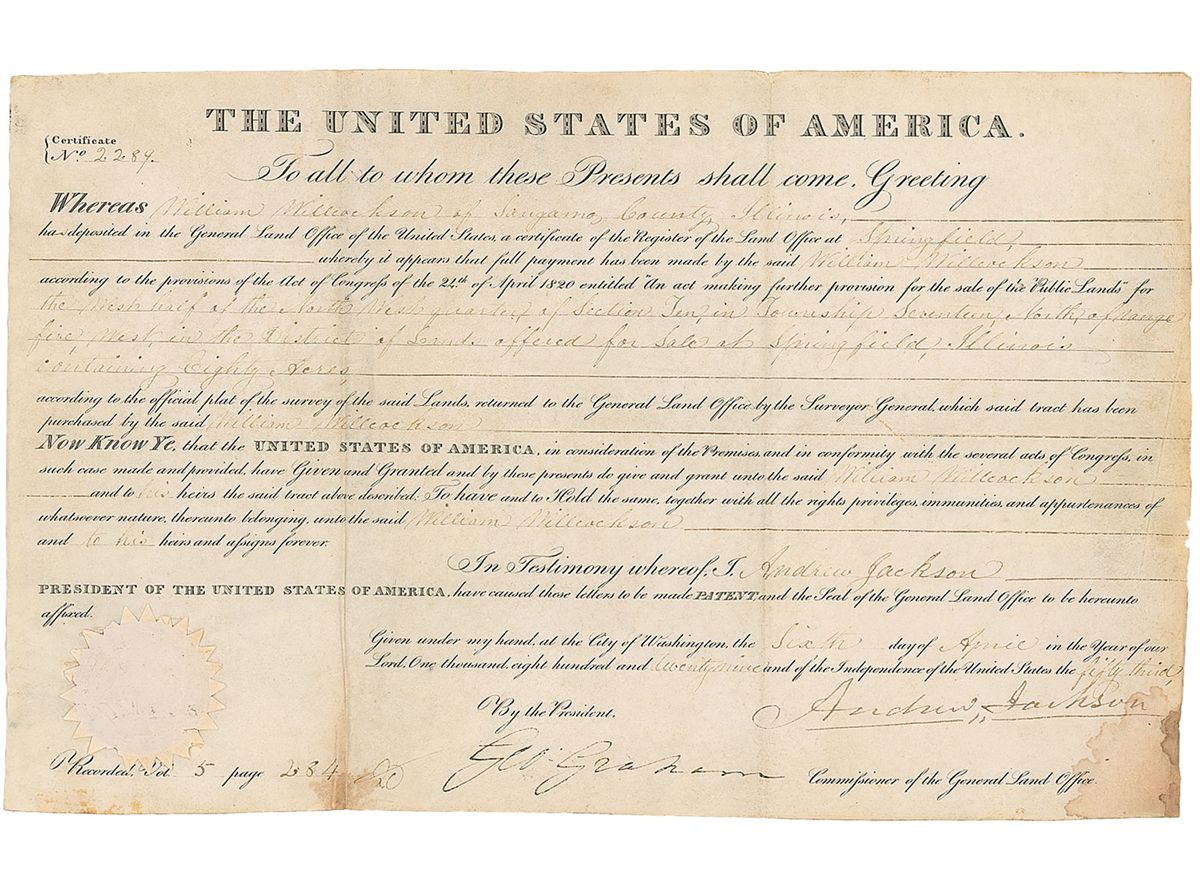 THE UNITED STATES OF AMERICA.
Certificate
No. 2289.
To all to whom these Presents shall come, Greeting
Whereas William Willcockson of Sangamo County, Illinois,
has deposited in the General Land Office of the United States, a certificate of the Register of the Land Office at Springfield,
whereby it appears that full payment has been made by the said William Willcockson
according to the provisions of the Act of Congress of the 24th of April 1820 entitled "An act making further provision for the sale of the Public Lands" for
the West half of the North West quarter, of Section Ten, in Township Seventeen, North, of range
five, West, in the District of Lands offered for Sale at Springfield, Illinois
containing Eighty Acres,
according to the official plat of the survey of the said Lands, returned to the General Land Office by the Surveyor General, which said tract has been
purchased by the said William Willcockson
Now Know Ye, that the UNITED STATES OF AMERICA, in consideration of the Premises, and in conformity with the several acts of Congress, in
such case made and provided, have Given and Granted and by these presents do give and grant unto the said William Willcockson
and to his heirs the said tract above described; To have and to Hold the same, together with all the rights privileges, immunities, and appurtenances of
whatsoever nature, thereunto belonging, unto the said William Willcockson
and to his heirs and assigns forever.
In Testimony whereof, I, Andrew Jackson
PRESIDENT OF THE UNITED STATES OF AMERICA, have caused these letters to be made PATENT, and the Seal of the General Land Office to be hereunto
affixed.
Given under my hand, at the City of Washington, the Sixth day of in the Year of our
Lord, One thousand, eight hundred and twenty nine and of the Independence of the United States the fifty third,
By the President, Andrew Jackson
Geo: Graham Commissioner of the General Land Office.
Recorded, Vol 5 page 284